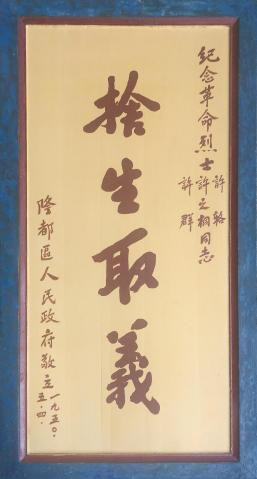 紀念革命烈士許輅許之桐許群同志
捨生取義
隆都區人民政府敬立
一九五〇.五.四.